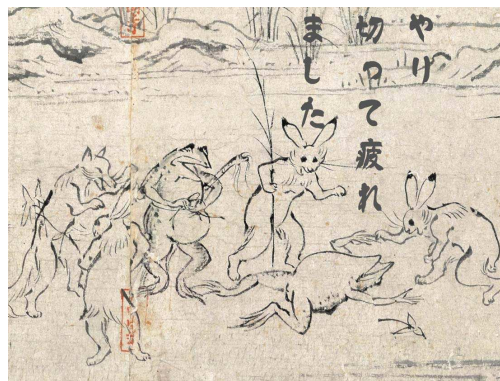 やり
切って疲れ
ました